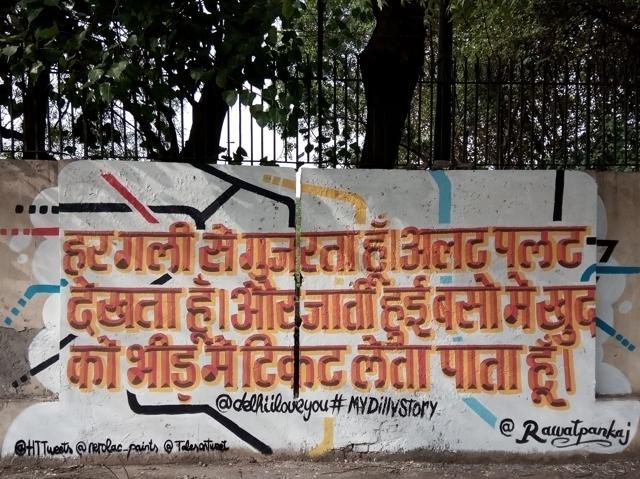 हर गली से गुजरता हूँ। अलट पलट
देखता हूँ। और जाती हुई बसो मे खुद
को भीड़ में टिकट लेता पाता हूँ।
@delhiiloveyou# MYDillyStory
@Rawatpankaj
@HTTweets @nerolac_paints @Talesontweet